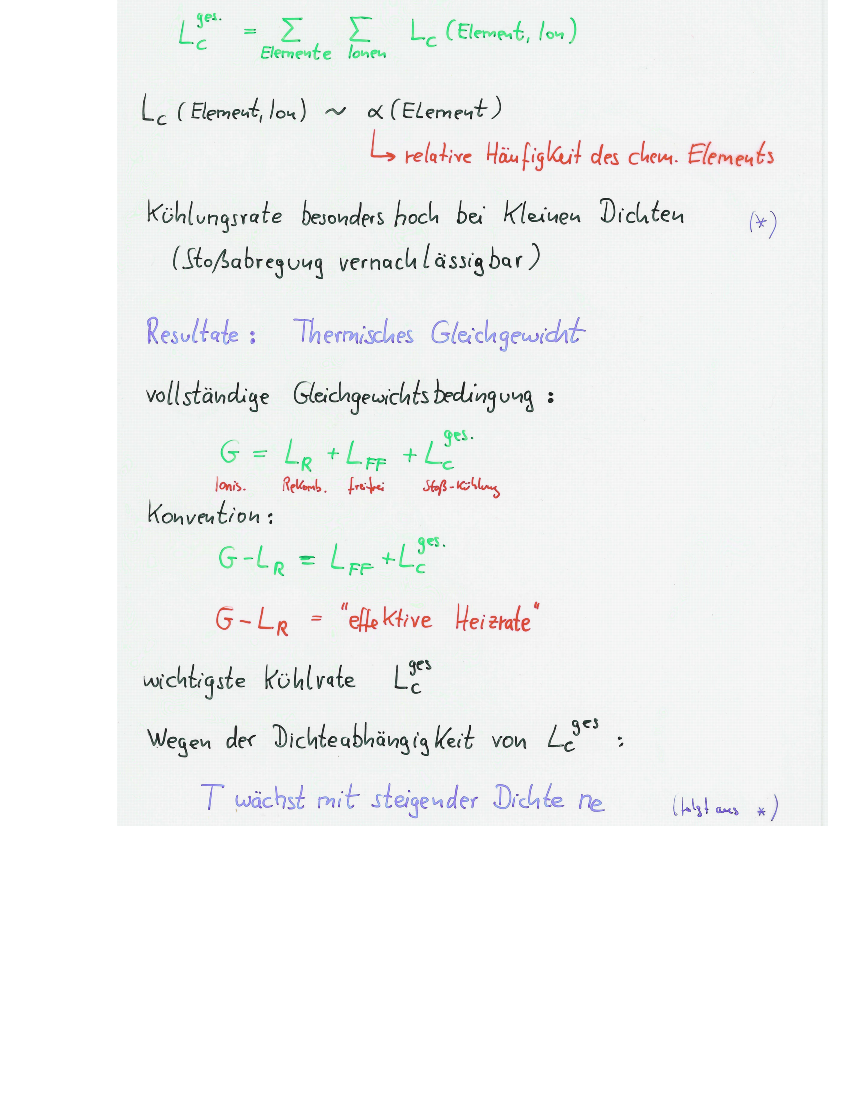 L_C^ges. = Σ Σ L_C (Element, Ion)
Elemente Ionen
L_C (Element, Ion) ~ α (Element)
↳ relative Häufigkeit des chem. Elements
Kühlungsrate besonders hoch bei kleinen Dichten (*)
(Stoßabregung vernachlässigbar)
Resultate: Thermisches Gleichgewicht
vollständige Gleichgewichtsbedingung:
G = L_R + L_FF + L_C^ges.
Ionis. Rekomb. freifrei Stoß-Kühlung
Konvention:
G - L_R = L_FF + L_C^ges.
G - L_R = "effektive Heizrate"
wichtigste Kühlrate L_C^ges
Wegen der Dichteabhängigkeit von L_C^ges :
T wächst mit steigender Dichte ne (folgt aus *)